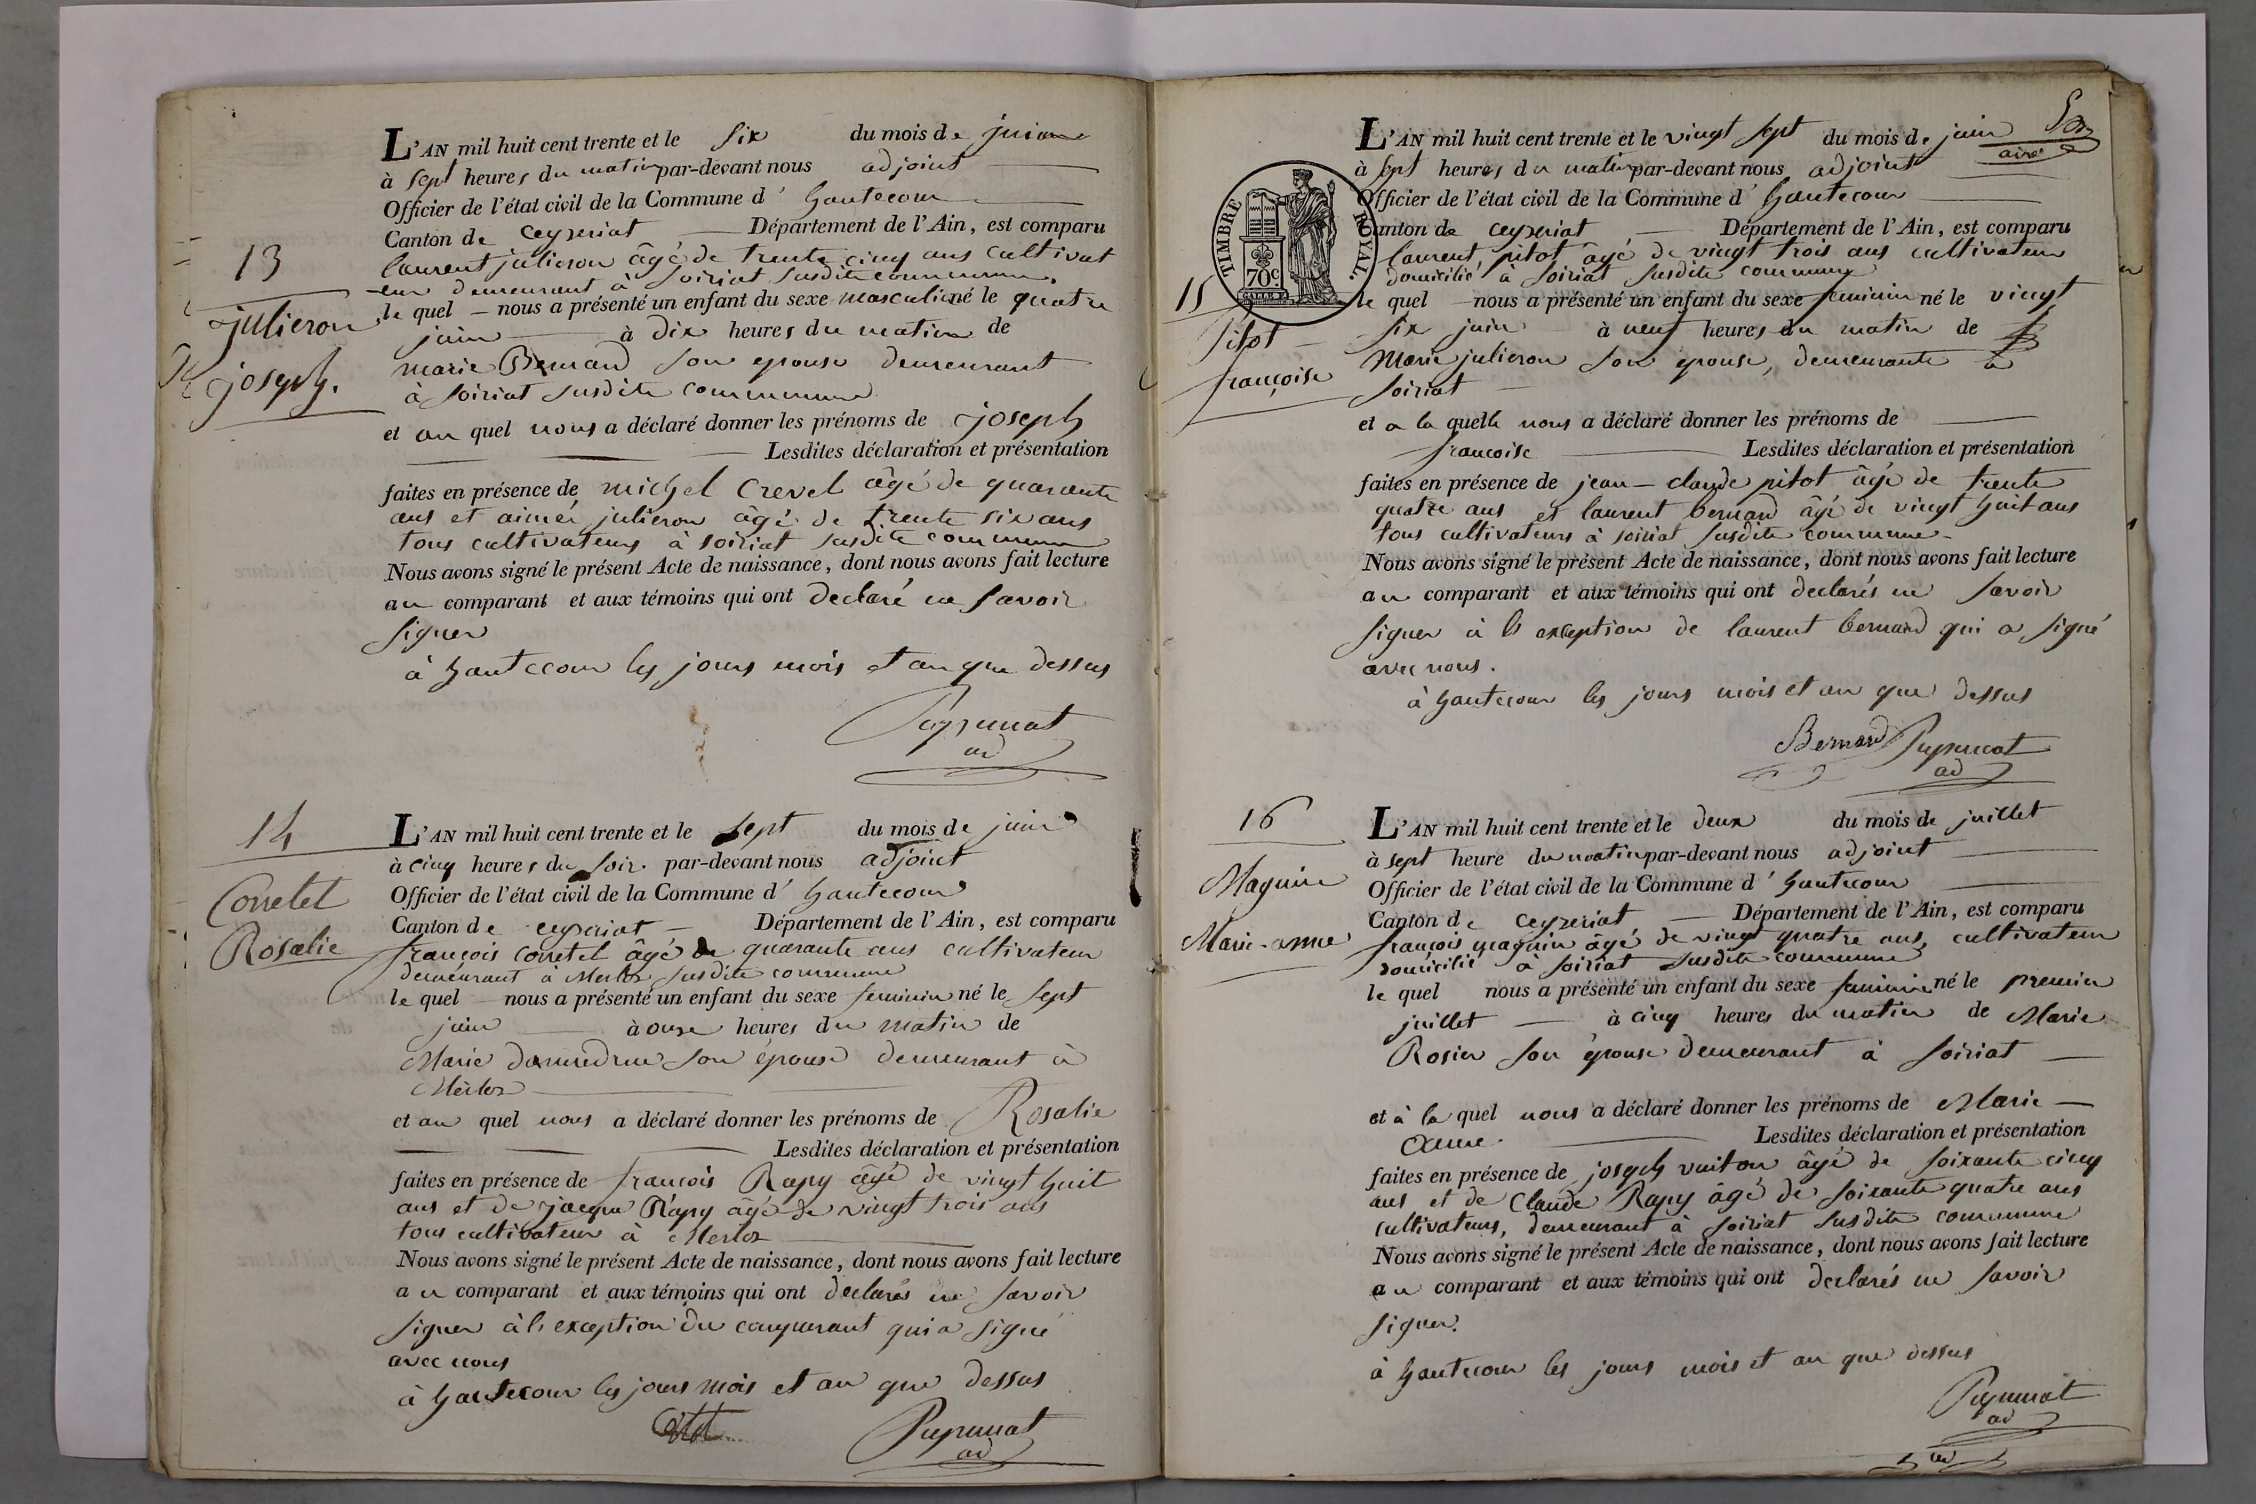 13
julieron
joseph.
L'AN mil huit cent trente et le six du mois de juin
à sept heures du matin par-devant nous adjoint
Officier de l'état civil de la Commune d' hautecour
Canton de ceyzeriat Département de l'Ain, est comparu
laurent julieron âgé de trente cinq ans cultivat
eur demeurant à soiriat susdite commune.
le quel nous a présenté un enfant du sexe masculin né le quatre
juin à dix heures du matin de
marie Bernard son epouse demeurant
à soiriat susdite commune
et au quel nous a déclaré donner les prénoms de joseph
Lesdites déclaration et présentation
faites en présence de michel crevel âgé de quarante
ans et aimé julieron âgé de trente six ans
tous cultivateurs à soiriat susdite commune
Nous avons signé le présent Acte de naissance, dont nous avons fait lecture
au comparant et aux témoins qui ont declaré ne savoir
signer
à hautecour les jours mois et an que dessus
ad
14
Corretel
Rosalie
L'AN mil huit cent trente et le sept du mois de juin
à cinq heures du soir par-devant nous adjoint
Officier de l'état civil de la Commune d' hautecour
Canton de ceyzeriat Département de l'Ain, est comparu
françois corretel âgé de quarante ans cultivateur
demeurant à Merloz susdite commune
le quel nous a présenté un enfant du sexe feminin né le sept
juin à onze heures du matin de
Marie son épouse demeurant à
Merloz
et au quel nous a déclaré donner les prénoms de Rosalie
Lesdites déclaration et présentation
faites en présence de françois Rapy âgé de vingt huit
ans et de jacque Rapy âgé de vingt trois ans
tous cultivateur à Merloz
Nous avons signé le présent Acte de naissance, dont nous avons fait lecture
au comparant et aux témoins qui ont declarés ne savoir
signer à l'exception du comparant qui a signé
avec nous
à hautecour les jours mois et an que dessus
ad
TIMBRE ROYAL.
70c.
15
pitot
françoise
L'AN mil huit cent trente et le vingt sept du mois de juin
à sept heures du matin par-devant nous adjoint
Officier de l'état civil de la Commune d' hautecour
Canton de ceyzeriat Département de l'Ain, est comparu
laurent pitot âgé de vingt trois ans cultivateur
domicilié à soiriat susdite commune
le quel nous a présenté un enfant du sexe feminin né le vingt
six juin à neuf heures du matin de
Marie julieron son epouse, demeurante à
soiriat
et a la quelle nous a déclaré donner les prénoms de
francoise Lesdites déclaration et présentation
faites en présence de jean-claude pitot âgé de trente
quatre ans et laurent bernard âgé de vingt huit ans
tous cultivateurs à soiriat susdite commune
Nous avons signé le présent Acte de naissance, dont nous avons fait lecture
au comparant et aux témoins qui ont declarés ne savoir
signer à l'exception de laurent bernard qui a signé
avec nous.
à hautecour les jours mois et an que dessus
Bernard
ad
16
Maguin
Marie-anne
L'AN mil huit cent trente et le deux du mois de juillet
à sept heure du matin par-devant nous adjoint
Officier de l'état civil de la Commune d' hautecour
Canton de ceyzeriat Département de l'Ain, est comparu
françois maguin âgé de vingt quatre ans, cultivateur
domicilié à soiriat susdite commune
le quel nous a présenté un enfant du sexe feminin né le premier
juillet à cinq heures du matin de Marie
Rosier son épouse demeurant à soiriat
et à la quel nous a déclaré donner les prénoms de Marie-
anne. Lesdites déclaration et présentation
faites en présence de joseph vuiton âgé de soixante cinq
ans et de Claude Rapy âgé de soixante quatre ans
cultivateurs, demeurant à soiriat susdite commune
Nous avons signé le présent Acte de naissance, dont nous avons fait lecture
au comparant et aux témoins qui ont declarés ne savoir
signer.
à hautecour les jours mois et an que dessus
ad